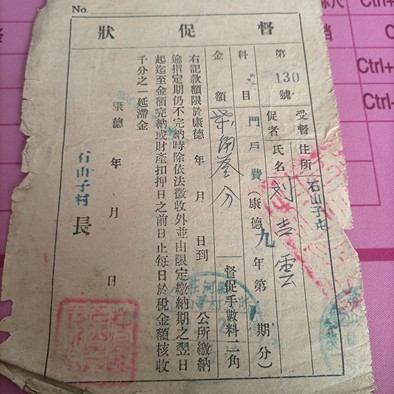 No.
督促狀
第130號
受督促者 住所 石山子屯
氏名 刘吉雲
科目 門戶費(康德九年第 期分)
金額 柒角叁分 督促手數料二角
右記款額限於康德 年 月 日到 公所繳納
逾指定期仍不完納時除依法徵收外並由限定繳納期之翌日
起迄至金額完納或財產扣押日之前日止每日於稅金額核收
千分之一延滯金
康德 年 月 日
石山子村長
Ctrl+
Ctrl+
Ctrl+
Ctrl+